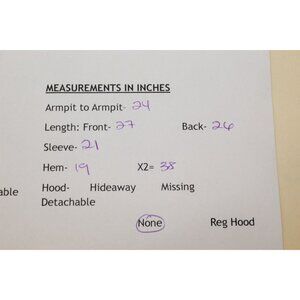 MEASUREMENTS IN INCHES
Armpit to Armpit- 24
Length: Front- 27 Back- 26
Sleeve- 21
Hem- 19 X2= 38
able Hood- Hideaway Missing
Detachable
None Reg Hood